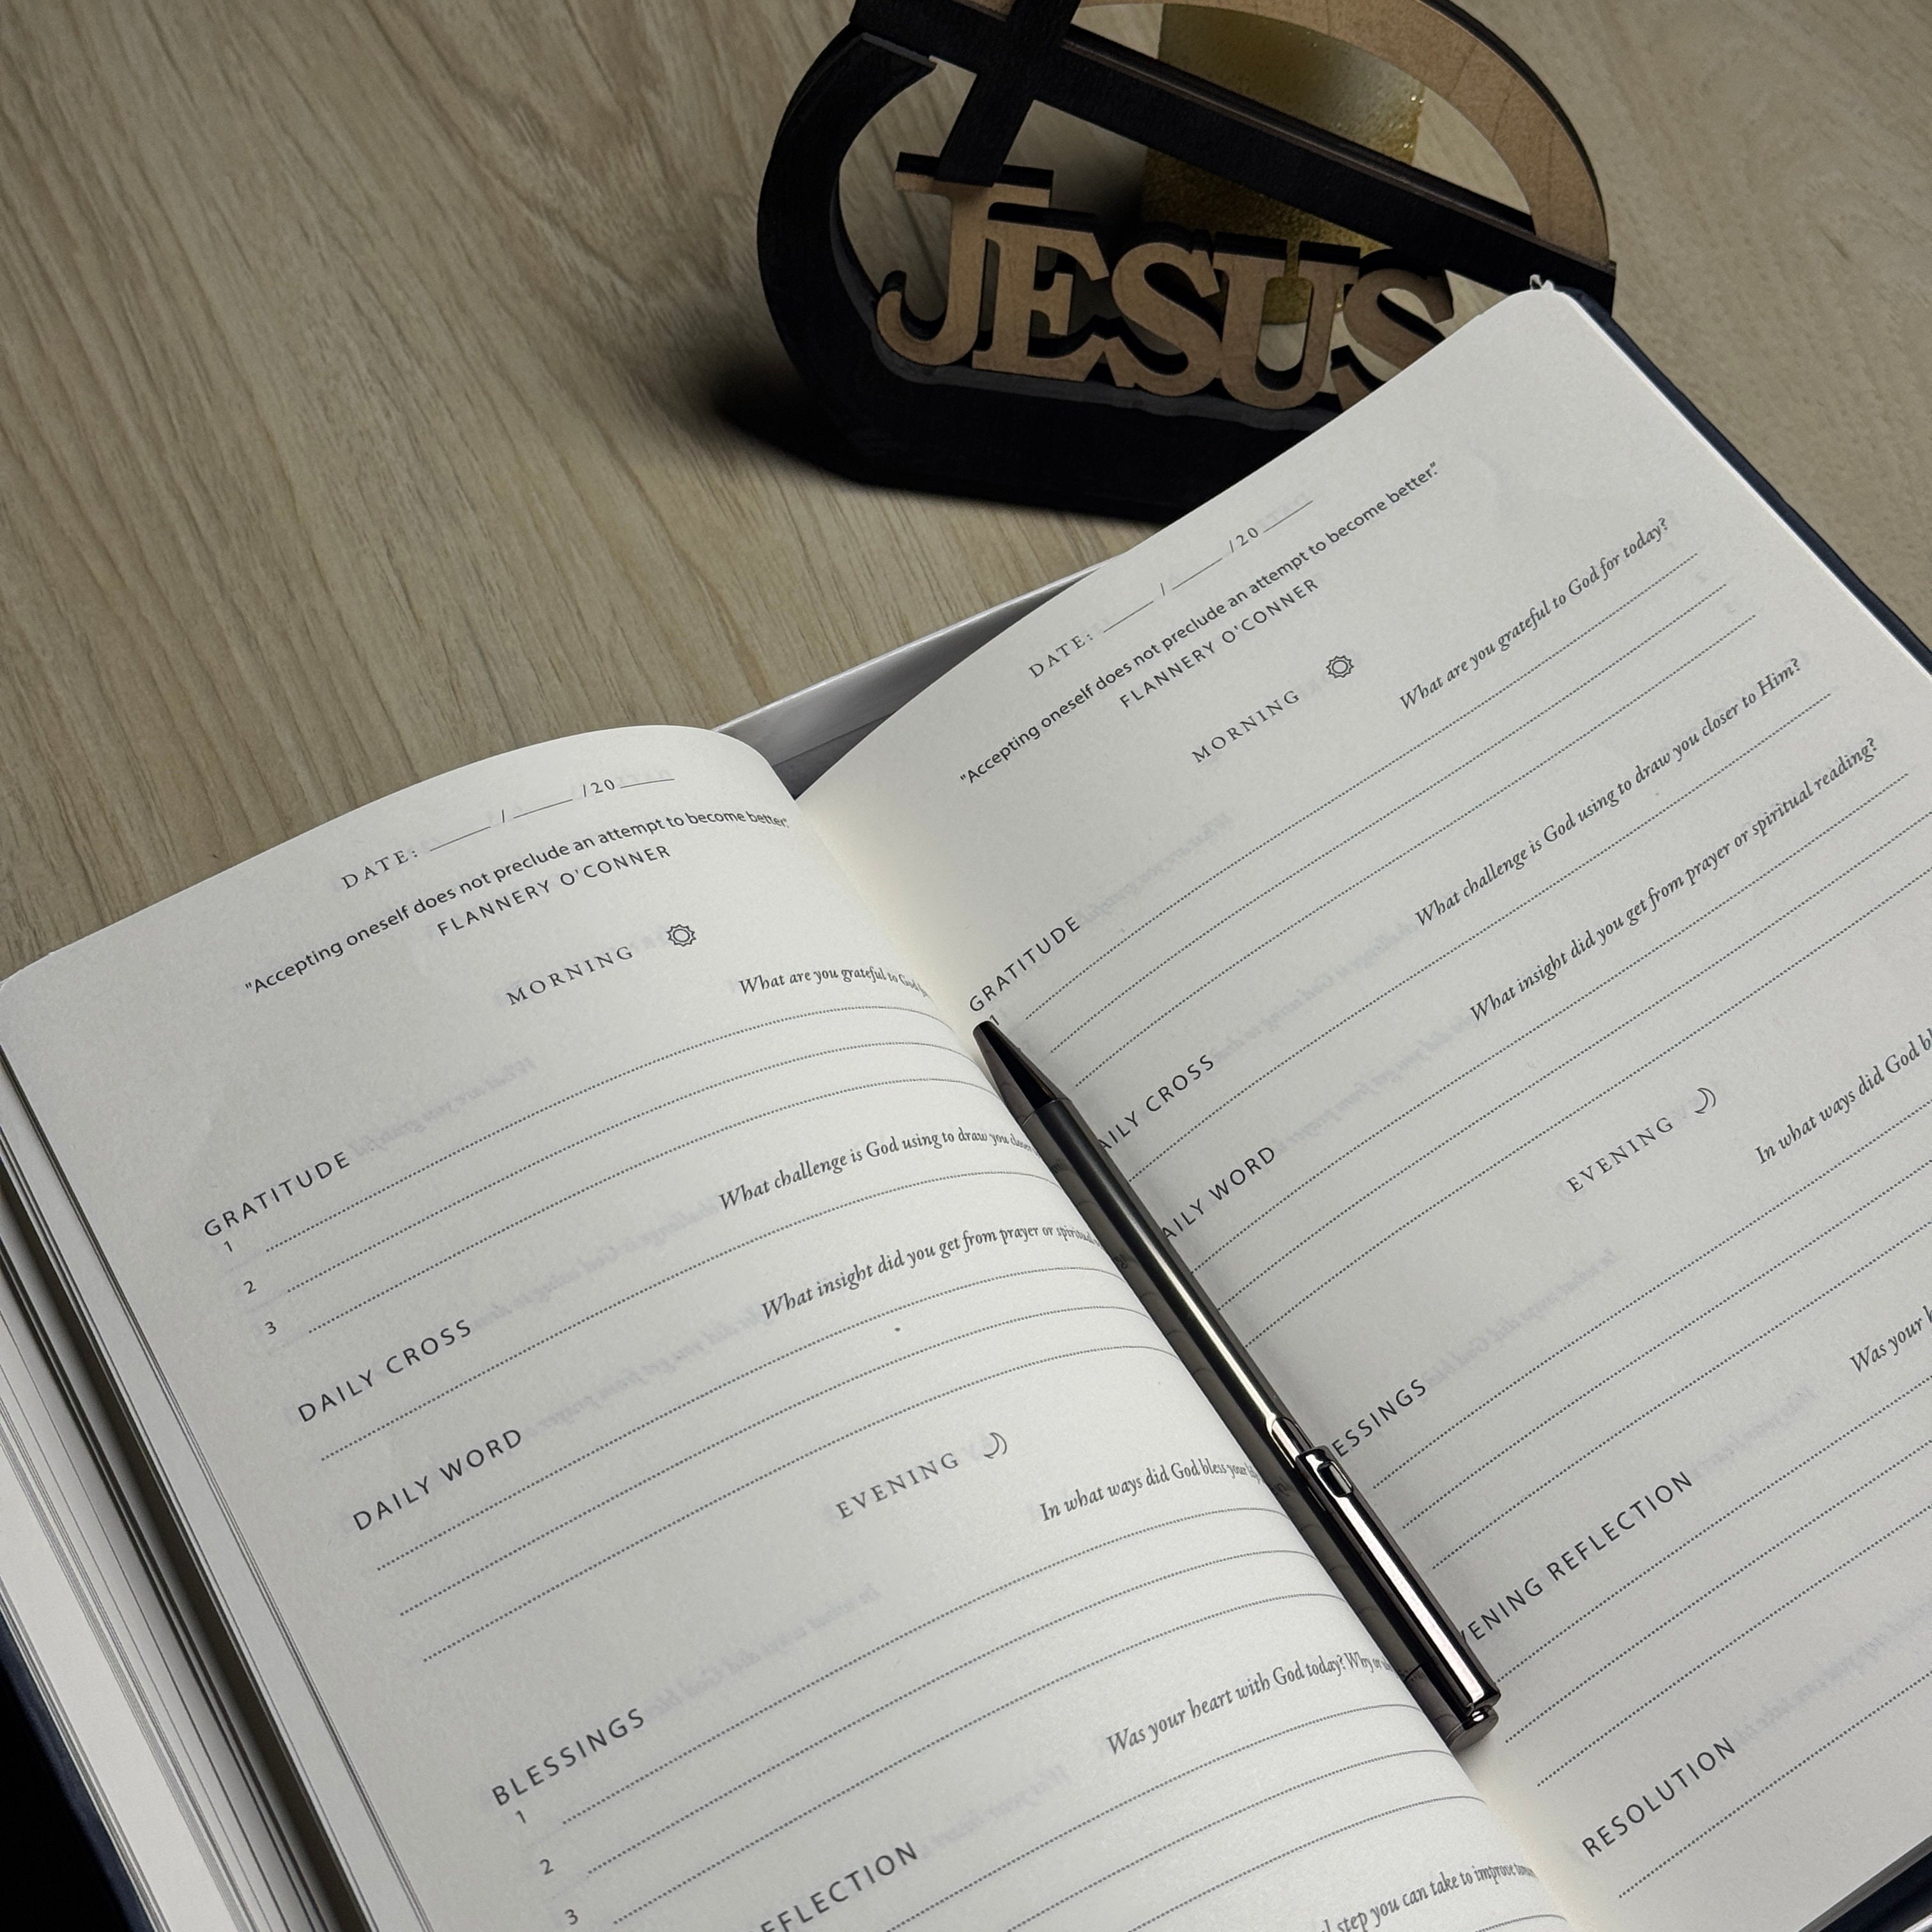 JESUS
DATE: ____ / ____ /20 ____
"Accepting oneself does not preclude an attempt to become better."
FLANNERY O'CONNER
MORNING
What are you grateful to God
GRATITUDE
1
2
3
What challenge is God using to draw you closer
DAILY CROSS
What insight did you get from prayer or spiritual
DAILY WORD
EVENING
In what ways did God bless your
BLESSINGS
1
2
3
Was your heart with God today? Why or
EFLECTION
step you can take to improve
DATE: ____ / ____ /20 ____
"Accepting oneself does not preclude an attempt to become better."
FLANNERY O'CONNER
MORNING
What are you grateful to God for today?
GRATITUDE
1
What challenge is God using to draw you closer to Him?
AILY CROSS
What insight did you get from prayer or spiritual reading?
AILY WORD
EVENING
In what ways did God bl
ESSINGS
Was your h
VENING REFLECTION
RESOLUTION